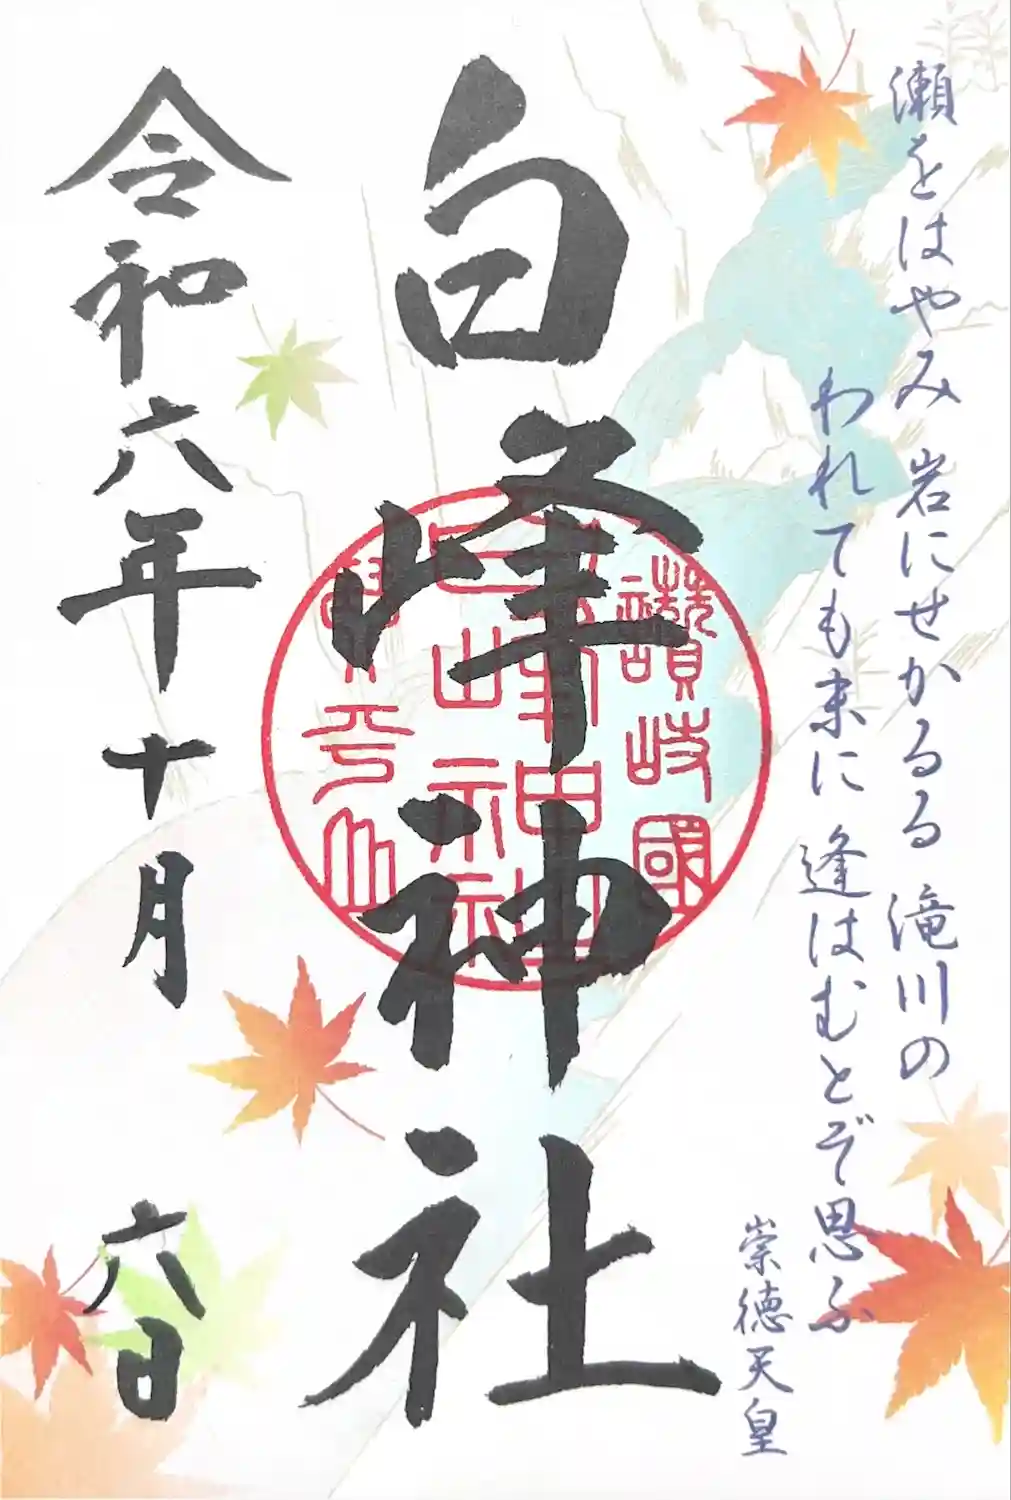 瀬をはやみ 岩にせかるる 滝川の
われても末に 逢はむとぞ思ふ
崇徳天皇
白峰神社
讃岐國
令和六年十月 六日